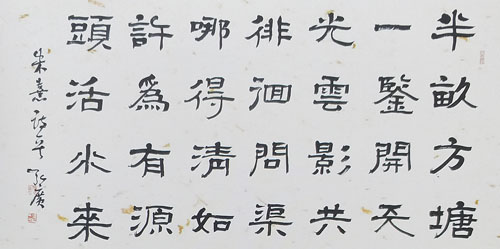 半畝方塘
一鑒開天
光雲影共
徘徊問渠
哪得清如
許爲有源
頭活水來
朱熹詩